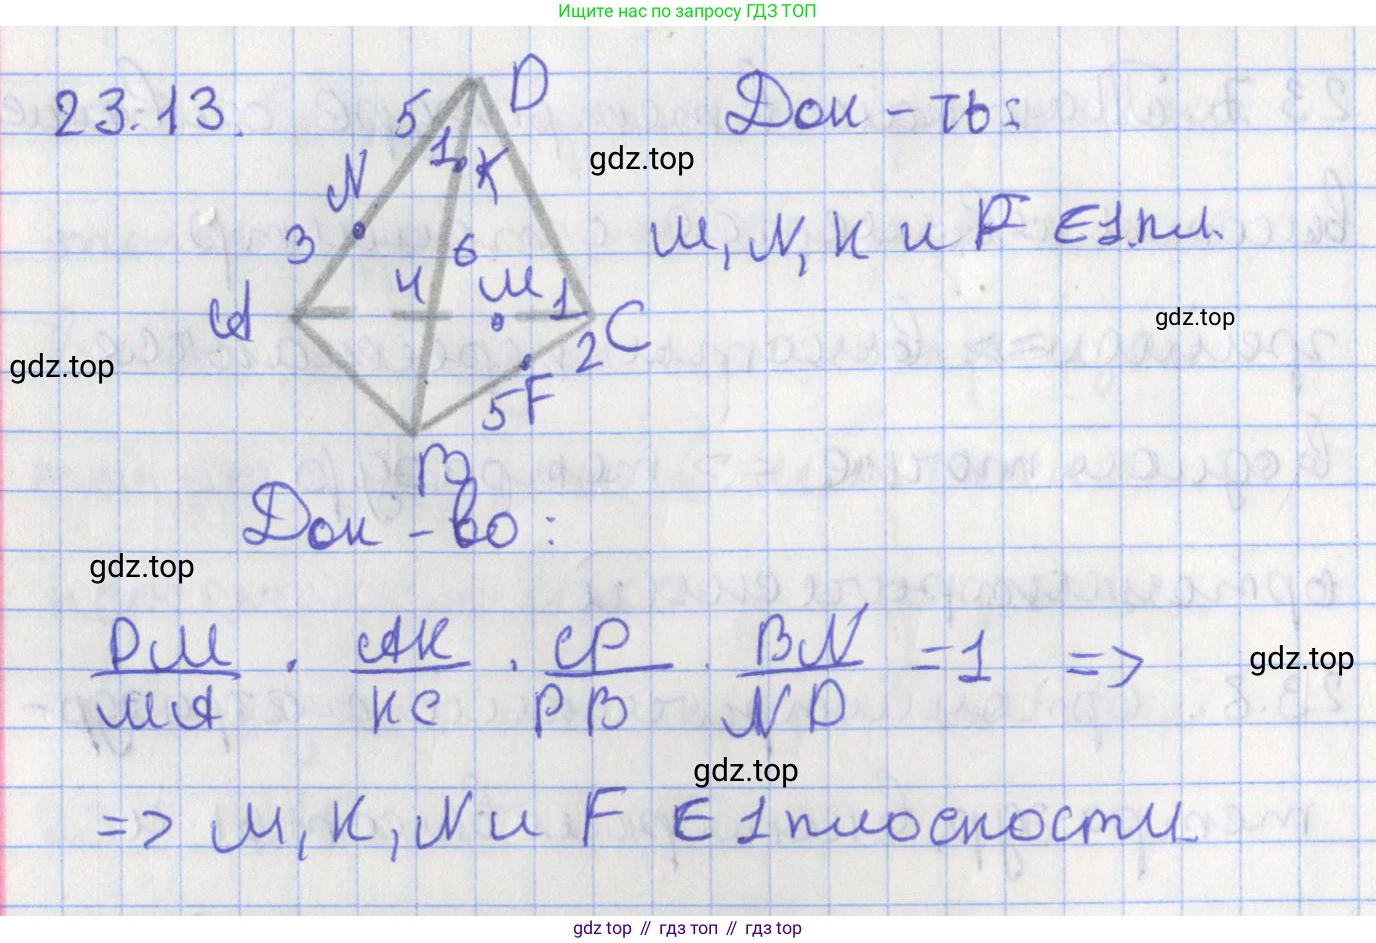 Ищите нас по запросу ГДЗ ТОП
23.13.
D
5
1
K
N
3
6
4
M
1
A
C
2
5
F
B
Док-ть:
M, N, K и F ∈ 1 пл.
gdz.top
gdz.top
gdz.top
Док-во:
gdz.top
DM/MA · AK/KC · CP/PB · BN/ND = 1 =>
gdz.top
gdz.top
=> M, K, N и F ∈ 1 плоскости.
gdz.top // гдз топ // гдз top